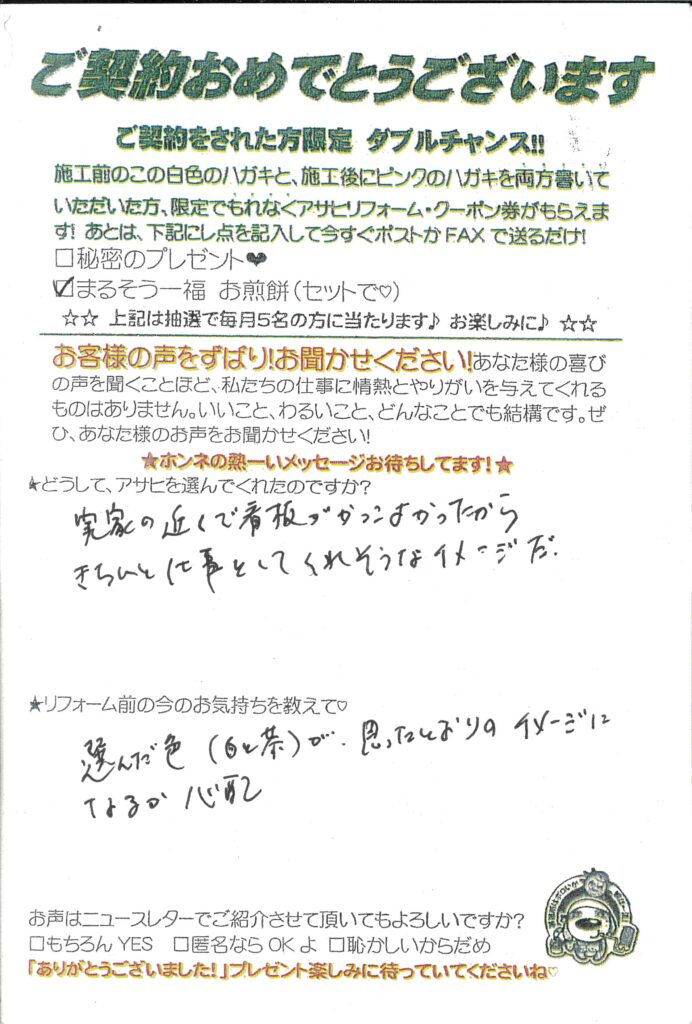 ご契約おめでとうございます
ご契約をされた方限定 ダブルチャンス!!
施工前のこの白色のハガキと、施工後にピンクのハガキを両方書いて
いただいた方、限定でもれなくアサヒリフォーム・クーポン券がもらえま
す! あとは、下記にレ点を記入して今すぐポストかFAXで送るだけ!
□秘密のプレゼント♥
☑まるそう一福 お煎餅(セットで♡)
☆☆ 上記は抽選で毎月5名の方に当たります♪ お楽しみに♪ ☆☆
お客様の声をずばり!お聞かせください!あなた様の喜び
の声を聞くことほど、私たちの仕事に情熱とやりがいを与えてくれる
ものはありません。いいこと、わるいこと、どんなことでも結構です。ぜ
ひ、あなた様のお声をお聞かせください!
★ホンネの熱ーいメッセージお待ちしてます!★
★どうして、アサヒを選んでくれたのですか?
実家の近くで看板がかっこよかったから
きちんと仕事としてくれそうなイメージだ.
★リフォーム前の今のお気持ちを教えて♡
選んだ色(白と茶)が、思ったとおりのイメージに
なるか心配
お声はニュースレターでご紹介させて頂いてもよろしいですか?
□もちろんYES □匿名ならOKよ □恥かしいからだめ
「ありがとうございました!」プレゼント楽しみに待っていてくださいね♡